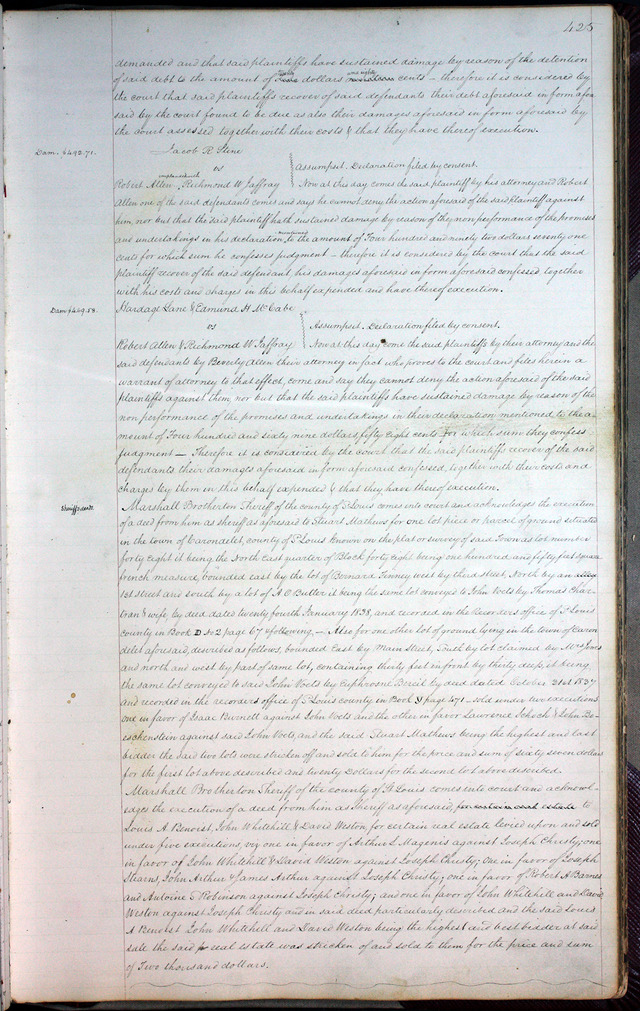 425
demanded and that said plaintiffs have sustained damage by reason of the detention
of said debt to the amount of dollars cents – therefore it is considered by
the court that said plaintiffs recover of said defendants their debt aforesaid in form afore
said by the court found to be due as also their damages aforesaid in form aforesaid by
the court assessed together with their costs & that they have thereof execution.
Dam. $492.71. Jacob R Stine
vs Assumpsit. Declaration filed by consent.
Robert Allen Richmond W Jaffray Now at this day comes the said plaintiff by his attorney and Robert
Allen one of the said defendants comes and says he cannot deny the action aforesaid of the said plaintiff against
him, nor but that the said plaintiff hath sustained damage by reason of the non performance of the promises
and undertakings in his declaration mentioned to the amount of Four hundred and ninety two dollars seventy one
cents for which sum he confesses judgment – therefore it is considered by the court that the said
plaintiff recover of the said defendant his damages aforesaid in form aforesaid confessed together
with his costs and charges in this behalf expended and have thereof execution.
Dam $469.58. Hardage Lane & Edmund H McCabe
vs Assumpsit. Declaration filed by consent.
Robert Allen & Richmond W Jaffray Now at this day come the said plaintiffs by their attorney and the
said defendants by Beverly Allen their attorney in fact who proves to the court and files herein a
warrant of attorney to that effect, come and say they cannot deny the action aforesaid of the said
plaintiffs against them, nor but that the said plaintiffs have sustained damage by reason of the
non performance of the promises and undertakings in their declaration mentioned to the a-
mount of Four hundred and sixty nine dollars fifty eight cents for which sum they confess
judgment – Therefore it is considered by the court that the said plaintiffs recover of the said
defendants their damages aforesaid in form aforesaid confessed, together with their costs and
charges by them in this behalf expended & that they have thereof execution.
Sheriff's deed. Marshall Brotherton Sheriff of the county of St Louis comes into court and acknowledges the execution
of a deed from him as sheriff as aforesaid to Stuart Mathews for one lot piece or parcel of ground situated
in the town of Carondelet, county of St Louis known on the plat or survey of said Town as lot number
forty eight it being the North East quarter of Block forty eight being one hundred and fifty feet square
french measure, bounded east by the lot of Bernard Finney west by third street, North by an alley
1st street and south by a lot of A C Butler it being the same lot conveyed to John Voets by Thomas Char
tran & wife by deed dated twenty fourth January 1838, and recorded in the Recorders office of St Louis
county in Book D No 2 page 67 & following, – Also for one other lot of ground lying in the town of Caron
delet aforesaid, described as follows, bounded East by Main Street, South by lot claimed by Mrs Jones
and north and west by part of same lot, containing thirty feet in front by thirty deep, it being
the same lot conveyed to said John Voets by Euphrosine Breid by deed dated October 21st 1837
and recorded in the recorders office of St Louis county in Book page 471 – sold under two executions
one in favor of Isaac Burnett against John Voets and the other in favor Lawrence Schoch & John Be-
eschenstein against said John Voets, and the said Stuart Mathews being the highest and last
bidder the said two lots were stricken off and sold to him for the price and sum of sixty seven dollars
for the first lot above described and twenty Dollars for the second lot above described.
Marshall Brotherton Sheriff of the county of St Louis comes into court and acknowl-
edges the execution of a deed from him as Sheriff as aforesaid, for certain real estate to
Louis A Benoist, John Whitehill & David Weston for certain real estate levied upon and sold
under five executions, viz one in favor of Arthur L Magenis against Joseph Christy; one
in favor of John Whitehill & David Weston against Joseph Christy; one in favor of Joseph
Stearns, John Arthur & James Arthur against Joseph Christy; one in favor of Robert A Barnes
and Antoine S Robinson against Joseph Christy; and one in favor of John Whitehill and David
Weston against Joseph Christy and in said deed particularly described and the said Louis
A Benoist John Whitehill and David Weston being the highest and best bidder at said
sale the said real estate was stricken of and sold to them for the price and sum
of Two thousand dollars.